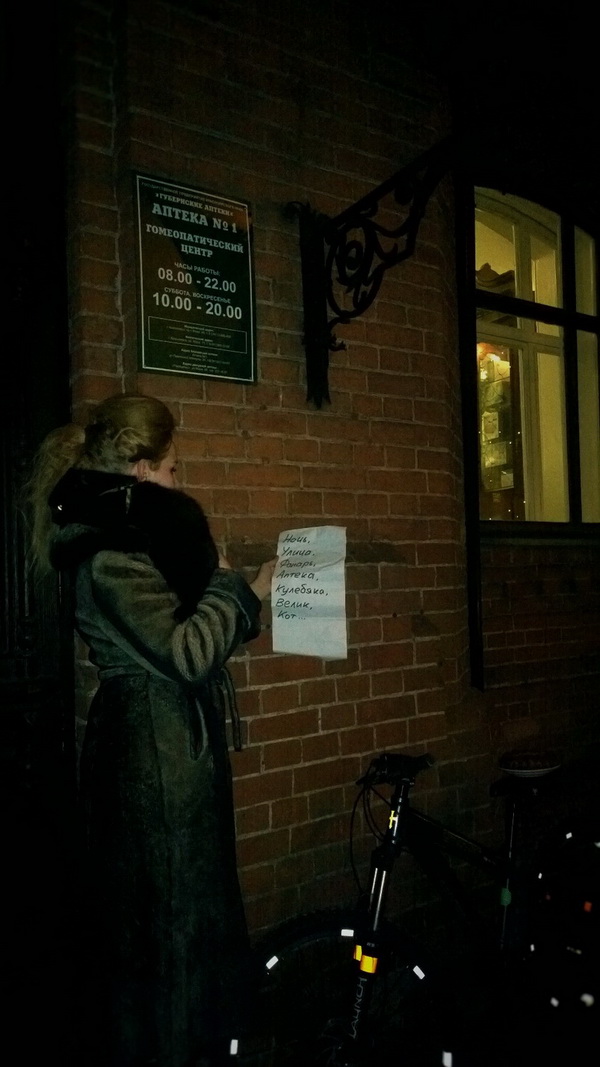 «ГУБЕРНСКИЕ АПТЕКИ»
АПТЕКА №1
ГОМЕОПАТИЧЕСКИЙ
ЦЕНТР
ЧАСЫ РАБОТЫ:
08.00 - 22.00
СУББОТА, ВОСКРЕСЕНЬЕ
10.00 - 20.00
Ночь,
Улица.
Фонарь.
Аптека,
Кулебяка,
Велик,
Кот...
LAUNCH